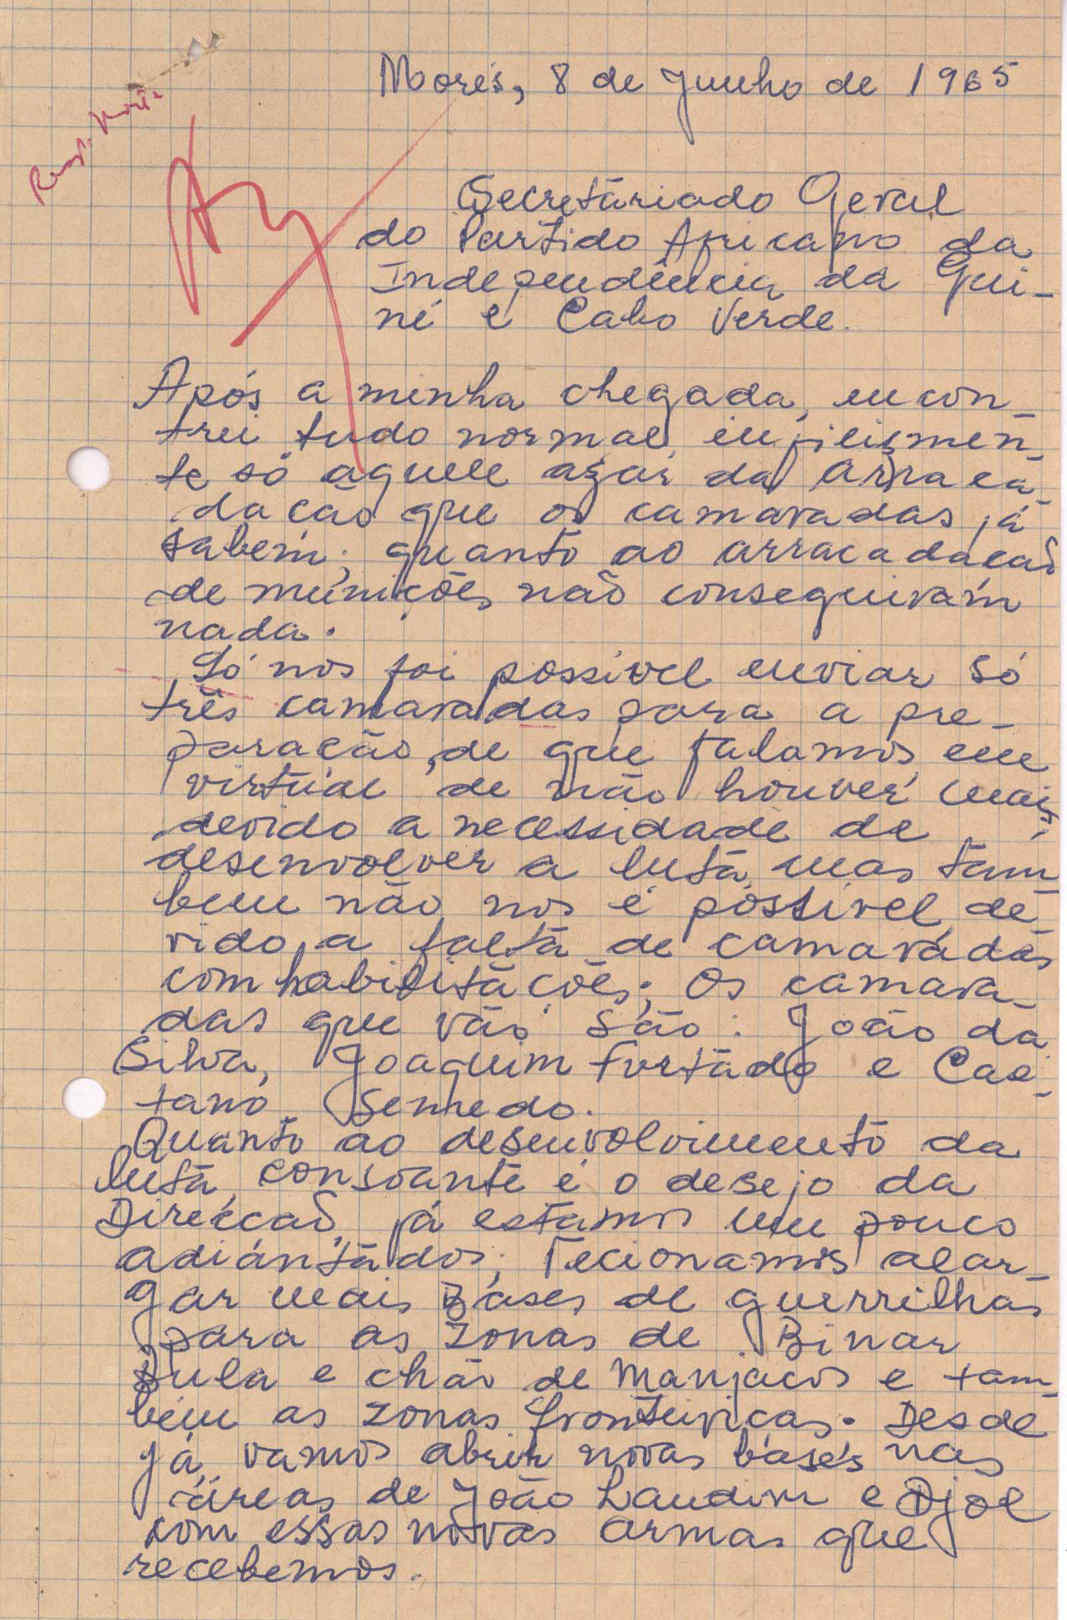 Morés, 8 de Junho de 1965
Secretáriado Geral
do Partido Africano da
Independência da Gui-
né e Cabo Verde.
Após a minha chegada, encon-
trei tudo normal, infilizmen-
te só aquele azar da arraca-
dacão que os camaradas já
sabem; quanto ao arracadacão
de munições não conseguiram
nada.
Só nos foi possivel enviar só
três camaradas para a pre-
paracão, de que falamos, em
virtúde de não houver mais,
devido a necessidade de
desenvolver a luta, mas tam-
bem não nos é possivel, de-
vido a falta de camaradas
com habilitacões; Os camara-
das que vão são: João da
Silva, Joaquim Furtado e Cae-
tano Semedo.
Quanto ao desenvolvimento da
luta, consoante é o desejo da
Direccão, já estamos um pouco
adiantados; Tecionamos alar-
gar mais Bases de guerrilhas
para as zonas de Binar
Bula e chão de Manjacos e tam-
bém as zonas fronteiriças. Desde
já, vamos abrir novas bases nas
áreas de João Landim e Djol
com essas novas armas que
recebemos.